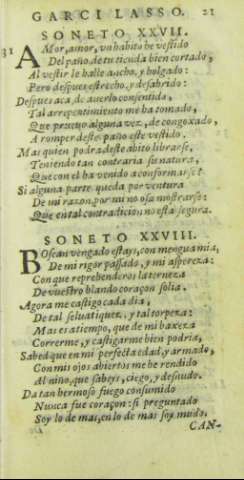 GARCI LASSO. 21
SONETO XXVII.
31
AMor, amor, vn habito he vestido
Del paño de tu tienda bien cortado,
Al vestir le halle ancho, y holgado:
Pero despues estrecho, y desabrido:
Despues aca, de auerlo consentido,
Tal arrepentimiento me ha tomado,
Que prueuo alguna vez, de congoxado,
A romper deste paño este vestido.
Mas quien podra deste abito librarse,
Teniendo tan contraria su natura,
Que con el ha venido a conformarse?
Si alguna parte queda por ventura
De mi razon, por mi no osa mostrarse:
Que en tal contradicion no està segura.
SONETO XXVIII.
BOscan vengado estays, con mengua mia,
De mi rigor passado, y mi aspereza:
Con que reprehenderos la terneza
De vuestro blando coraçon solia.
Agora me castigo cada dia,
De tal seluatiquez, y tal torpeza:
Mas es a tiempo, que de mi baxeza
Correrme, y castigarme bien podria,
Sabed que en mi perfecta edad, y armado,
Con mis ojos abiertos me he rendido
Al niño, que sabeys, ciego, y desnudo.
Da tan hermoso fuego consumido
Nunca fue coraçon: si preguntado
Soy lo de mas, en lo de mas soy mudo.
CAN-